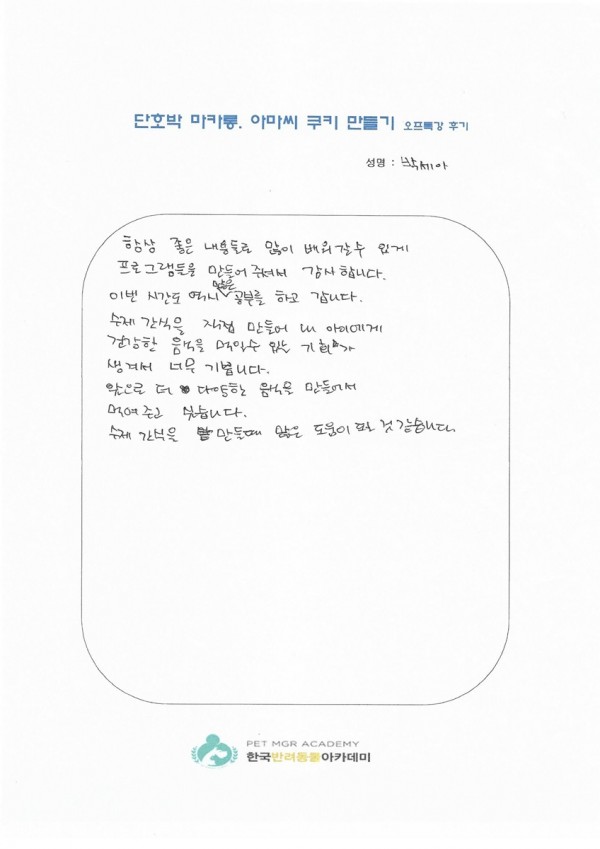 단호박 마카롱. 아마씨 쿠키 만들기 오프특강 후기
성명 : 박세아
항상 좋은 내용들로 많이 배워갈수 있게
프로그램들을 만들어 주셔서 감사합니다.
이번 시간도 역시 많은 공부를 하고 갑니다.
수제 간식을 직접 만들어 내 아이에게
건강한 음식을 먹일수 있는 기회가
생겨서 너무 기쁩니다.
앞으로 더 다양한 음식을 만들어서
먹여주고 싶습니다.
수제 간식을 만들때 많은 도움이 되는 것 같습니다.
PET MGR ACADEMY
한국반려동물아카데미